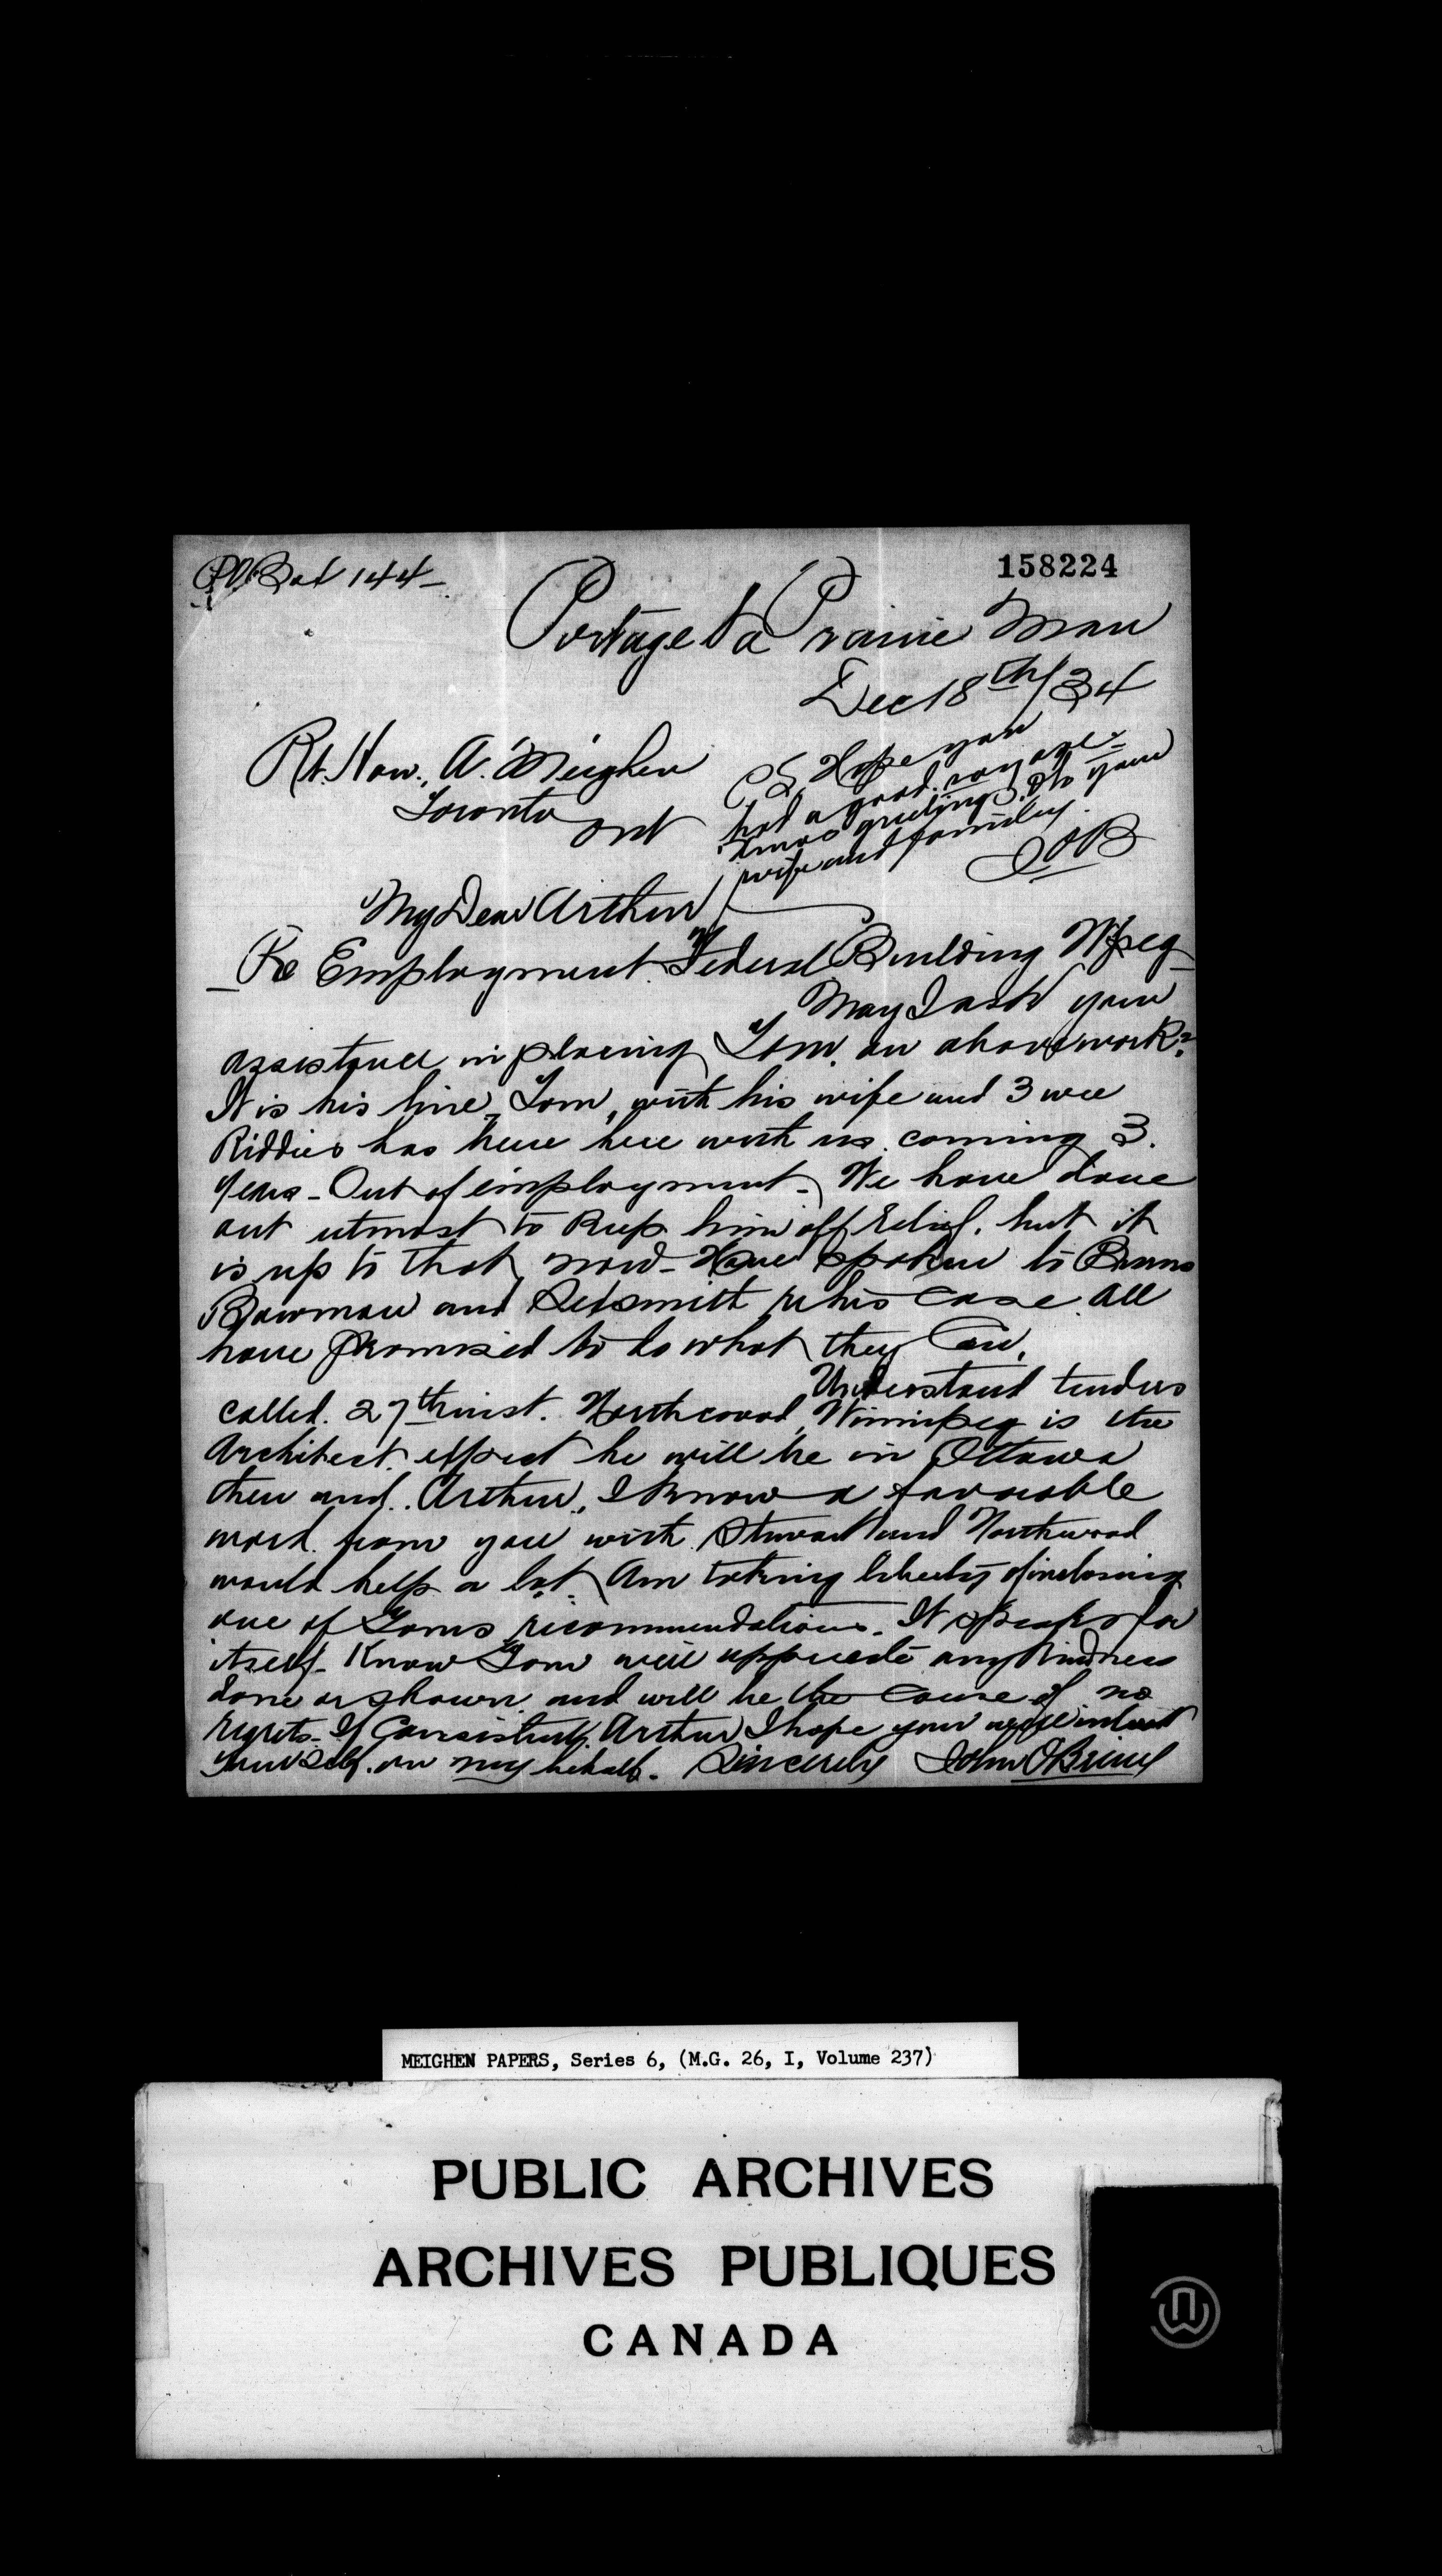 P.O. Box 144
158224
Portage La Prairie Man
Dec 18th/34
Rt. Hon. A. Meighen
Toronto
Ont
PS Hope you
had a good voyage.
Xmas greetings to your
wife and family.
JOB
My Dear Arthur
Re Employment Federal Building Wpeg
May I ask your
assistance in placing Tom on above work?
It is his line, Tom, with his wife and 3 wee
Kiddies has been here with us coming 3
years - Out of employment. We have done
our utmost to keep him off relief, but it
is up to that now - Have spoken to Burns
Bowman and Sexsmith re his case. All
have promised to do what they can.
Understand tenders
called 27th inst. Northwood, Winnipeg is the
Architect. expect he will be in Ottawa
then and. Arthur, I know a favorable
word from you with Stewart and Northwood
would help a lot. Am taking liberty of inclosing
one of Toms recommendations. It speaks for
itself. Know Tom will appreciate any kindness
done or shown and will be the cause of no
regrets. If Consistent, Arthur I hope your
yourself on my behalf. Sincerely John O'Brien
MEIGHEN PAPERS, Series 6, (M.G. 26, I, Volume 237)
PUBLIC ARCHIVES
ARCHIVES PUBLIQUES
CANADA